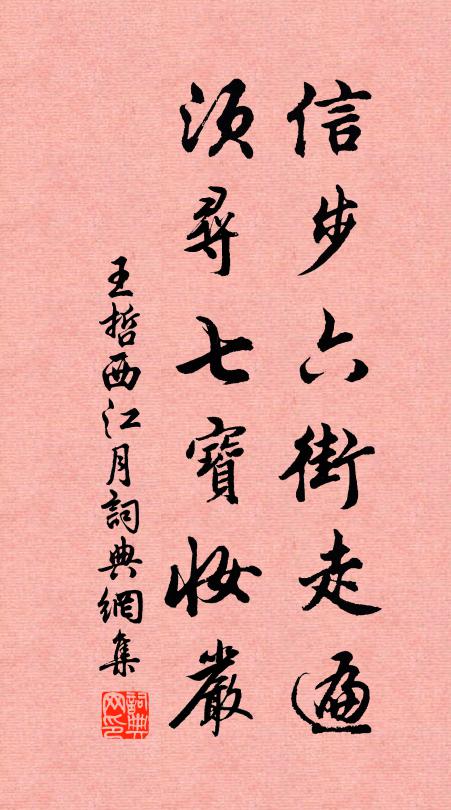 信步六街走遍
須尋七寶妝嚴
王哲西江月詞典網集
詞典网印